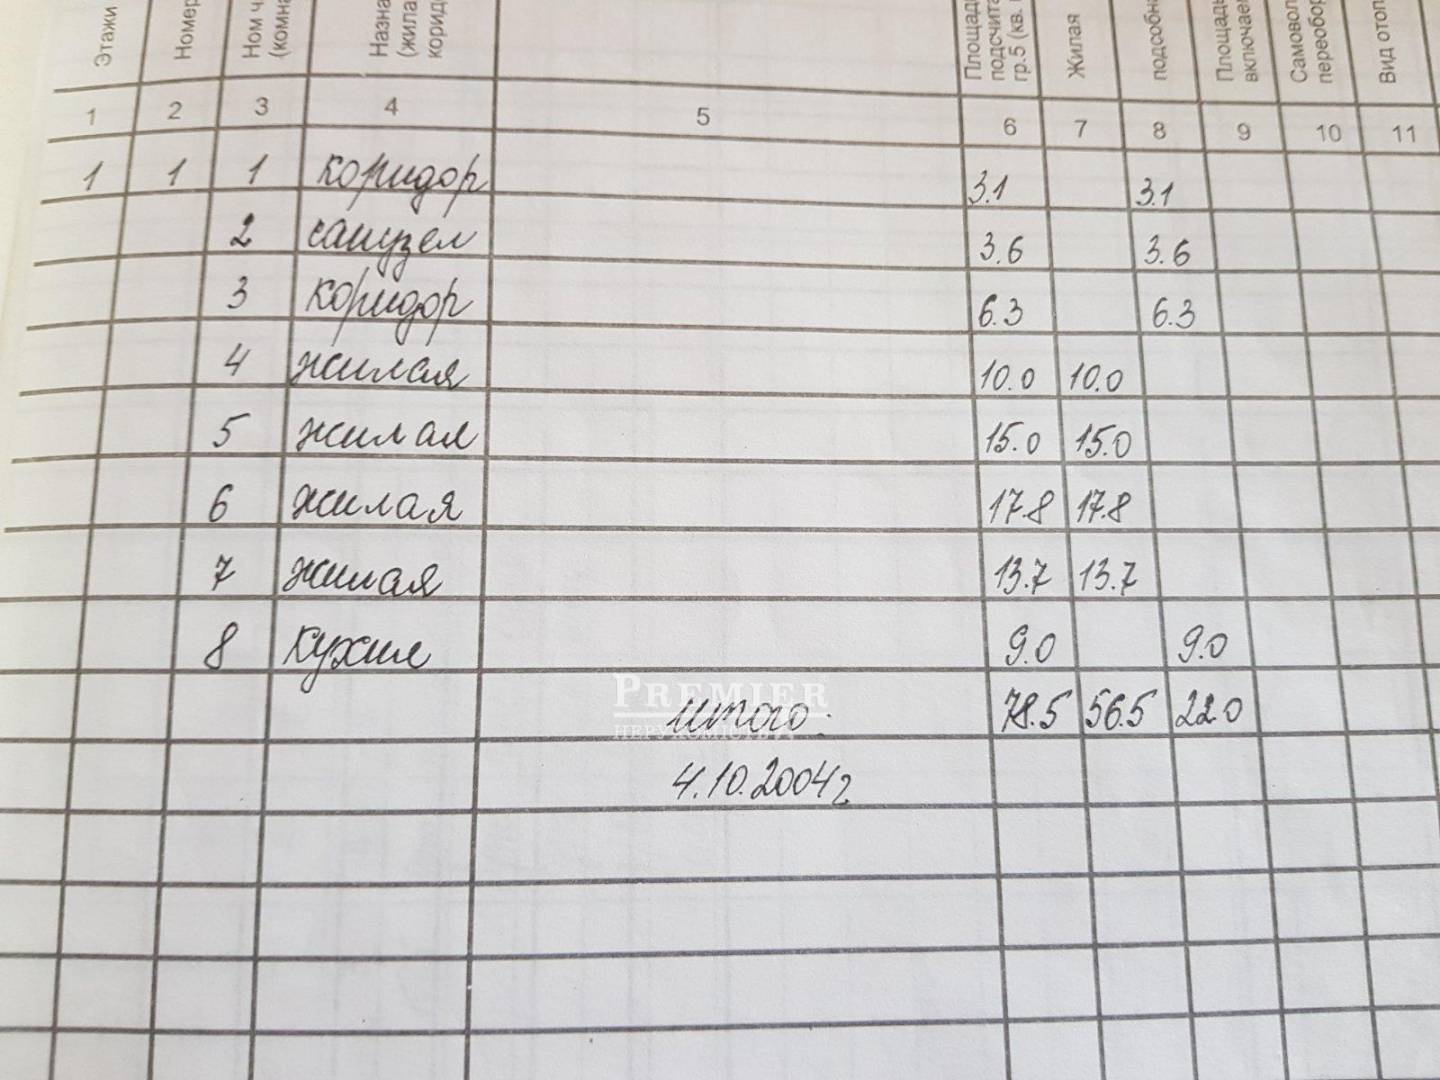 Этажи Номер Ном ч (комна Назна (жила коридо Площадь подсчита гр.5 (кв. Жилая подсобна Площадь включаем Самовол переобор Вид отоп
1 2 3 4 5 6 7 8 9 10 11
1 1 1 коридор 3.1 3.1
2 санузел 3.6 3.6
3 коридор 6.3 6.3
4 жилая 10.0 10.0
5 жилая 15.0 15.0
6 жилая 17.8 17.8
7 жилая 13.7 13.7
8 кухня 9.0 9.0
PREMIER
НЕРУХОМІСТЬ
итого: 78.5 56.5 22.0
4.10.2004г